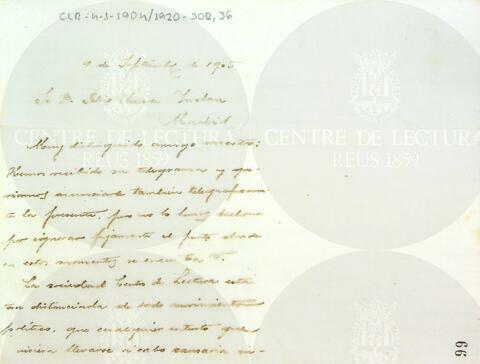 CLR-4-1-1904/1920-SOR,36
9 de Septiembre de 1905
Sr. D. Felix
Madrid
CENTRE DE LECTURA
REUS 1859
CENTRE DE LECTURA
REUS 1859
Muy distinguido amigo maestro:
Hemos recibido su telegrama y que-
riamos anunciarle tambien telegraficamen-
te la presente, pero no lo hemos hecho
por ignorar fijamente el punto donde
en estos momentos se encuentra V.
La sociedad Centro de Lectura está
tan distanciada de todo movimiento
politico, que cualquier intento que
viniera llevarse á cabo causaria
99